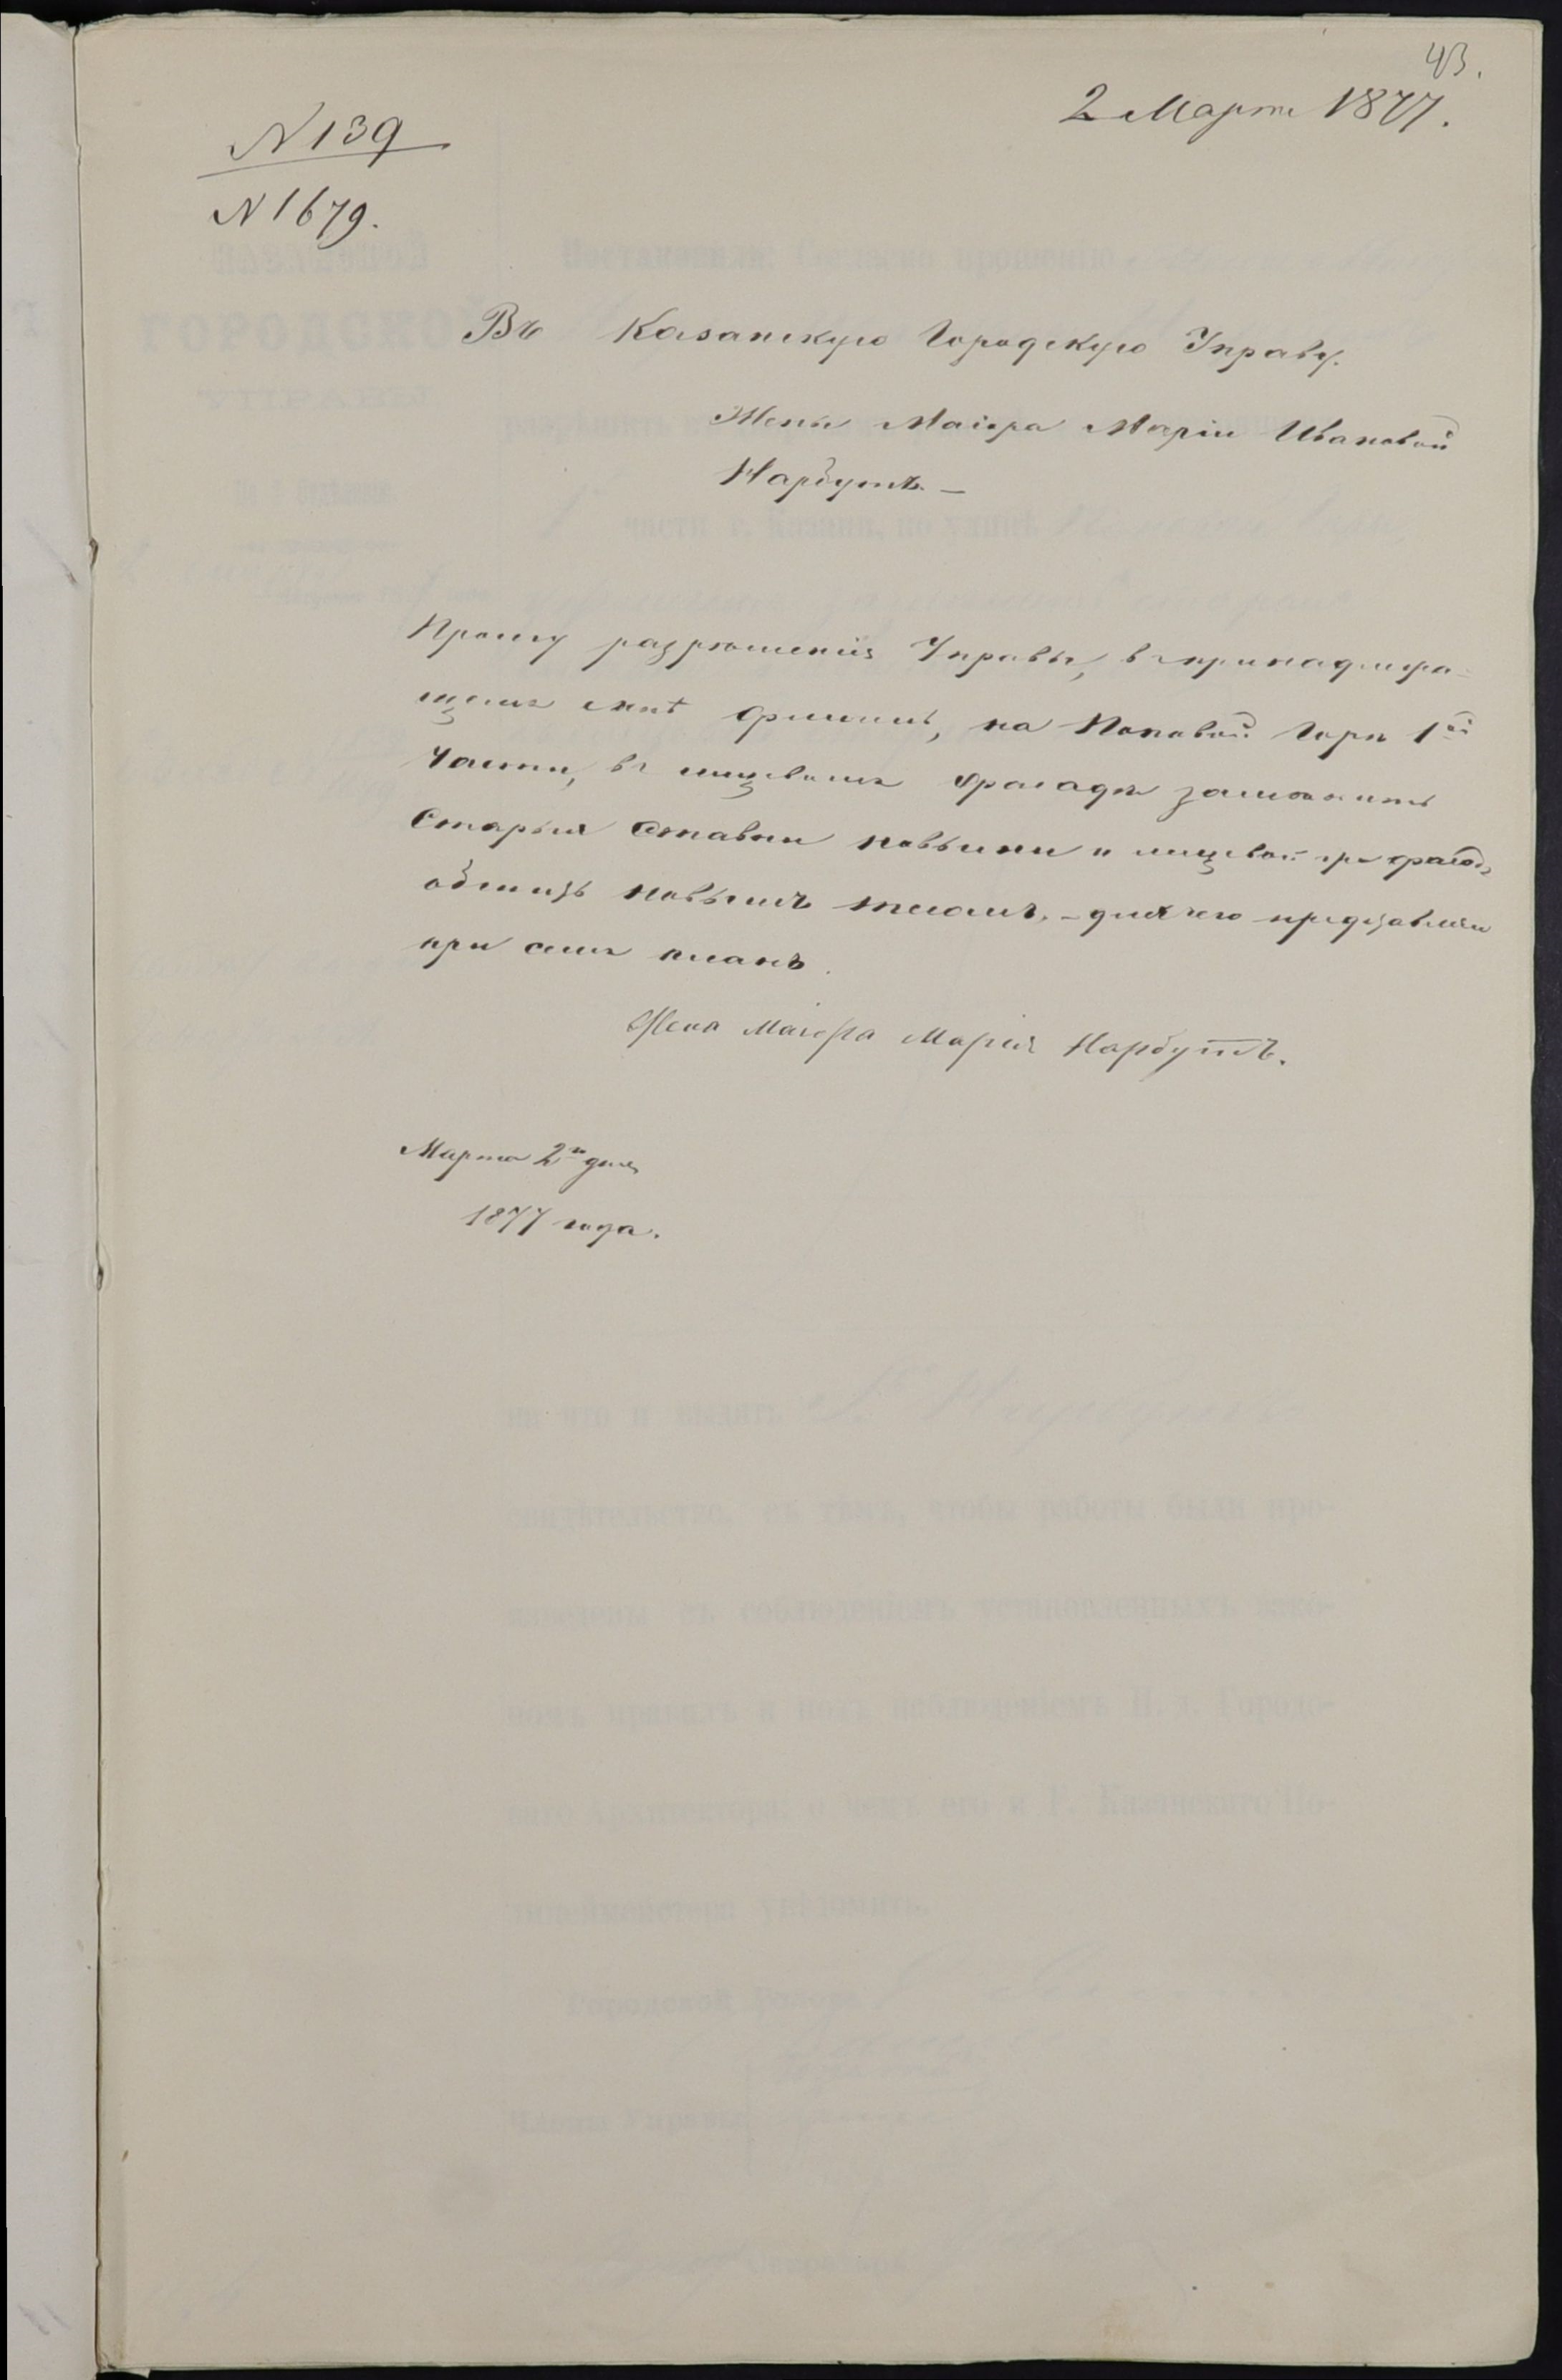 43.
2 Марта 1877.
N 139
N 1679.
Въ Казанскую Городскую Управу.
Жены Маіора Маріи Ивановой
Нарбутъ. —
Прошу разрѣшенія Управы, въ принадлежа-
щемъ мнѣ флигиль, на Поповой Горѣ 1ой
Части, въ лицевомъ фасадѣ замѣнить
Старыя Ставни новыми и лицевой фасадъ
обшить новымъ тесомъ, – для чего представляю
при семъ планъ.
Жена Маіора Марія Нарбутъ.
Марта 2го дня
1877 года.